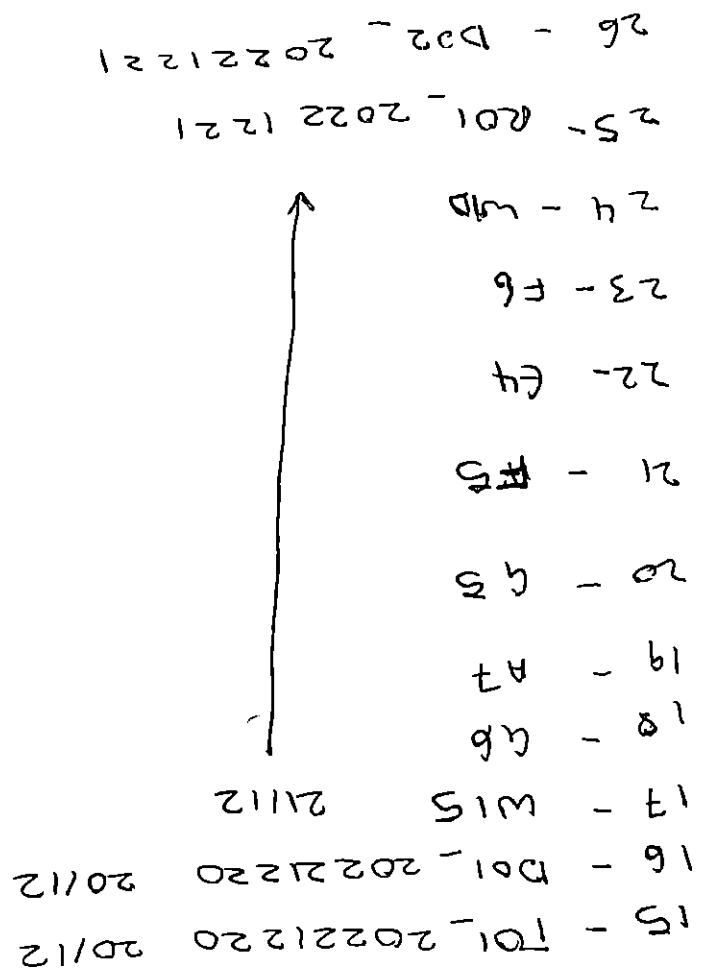 15 - T01_20221220 20/12
16 - D01_20221220 20/12
17 - W15 21/12
18 - G6
19 - A7
20 - G3
21 - F5
22- E4
23 - F6
24 - W10
25- R01_20221221
26 - D02_20221221